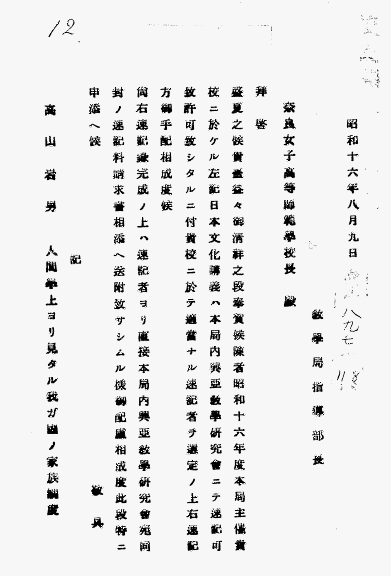 12
昭和十六年八月九日
教學局指導部長
奈良女子高等師範學校長 殿
拜啓
盛夏之候貴臺益々御清祥之段奉賀候陳者昭和十六年度本局主催貴
校ニ於ケル左記日本文化講義ハ本局内興亞教學研究會ニテ速記可
致許可致シタルニ付貴校ニ於テ適當ナル速記者ヲ選定ノ上右速記
方御手配相成度候
尚右速記錄完成ノ上ハ速記者ヨリ直接本局内興亞教學研究會宛同
封ノ速記料請求書相添へ送附致サシムル樣御配慮相成度此段特ニ
申添へ候
敬具
記
高山岩男 人間學上ヨリ見タル我ガ國ノ家族制度